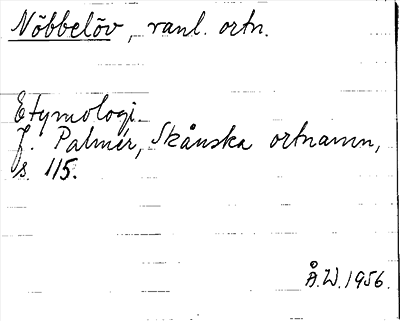 Nöbbelöv, vanl. ortn.
Etymologi.
J. Palmér, Skånska ortnamn,
s. 115.
Å.W. 1956.